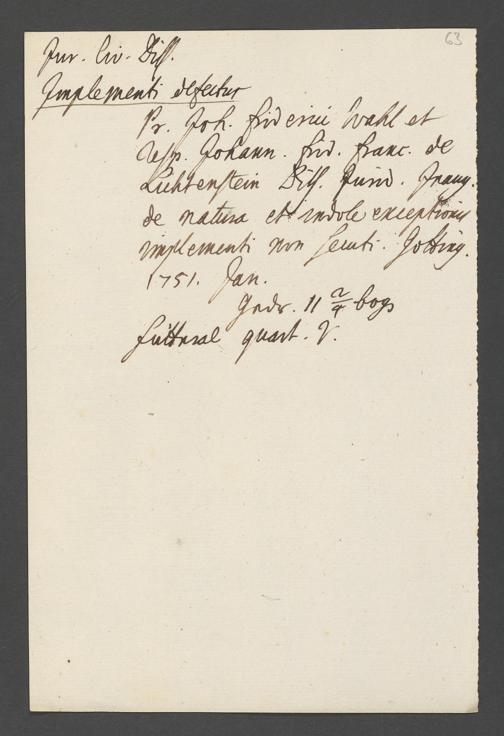 63
Jur. Civ. Diss.
Implementi defectus
Pr. Joh. Friderici Wahl et
Resp. Johann. Frid. Franc. de
Lichtenstein Diss. Jurid. Inaug.
de natura et indole exceptionis
implementi non secuti. Gotting.
1751. Jan.
11 2/4 bogs
futteral quart. V.